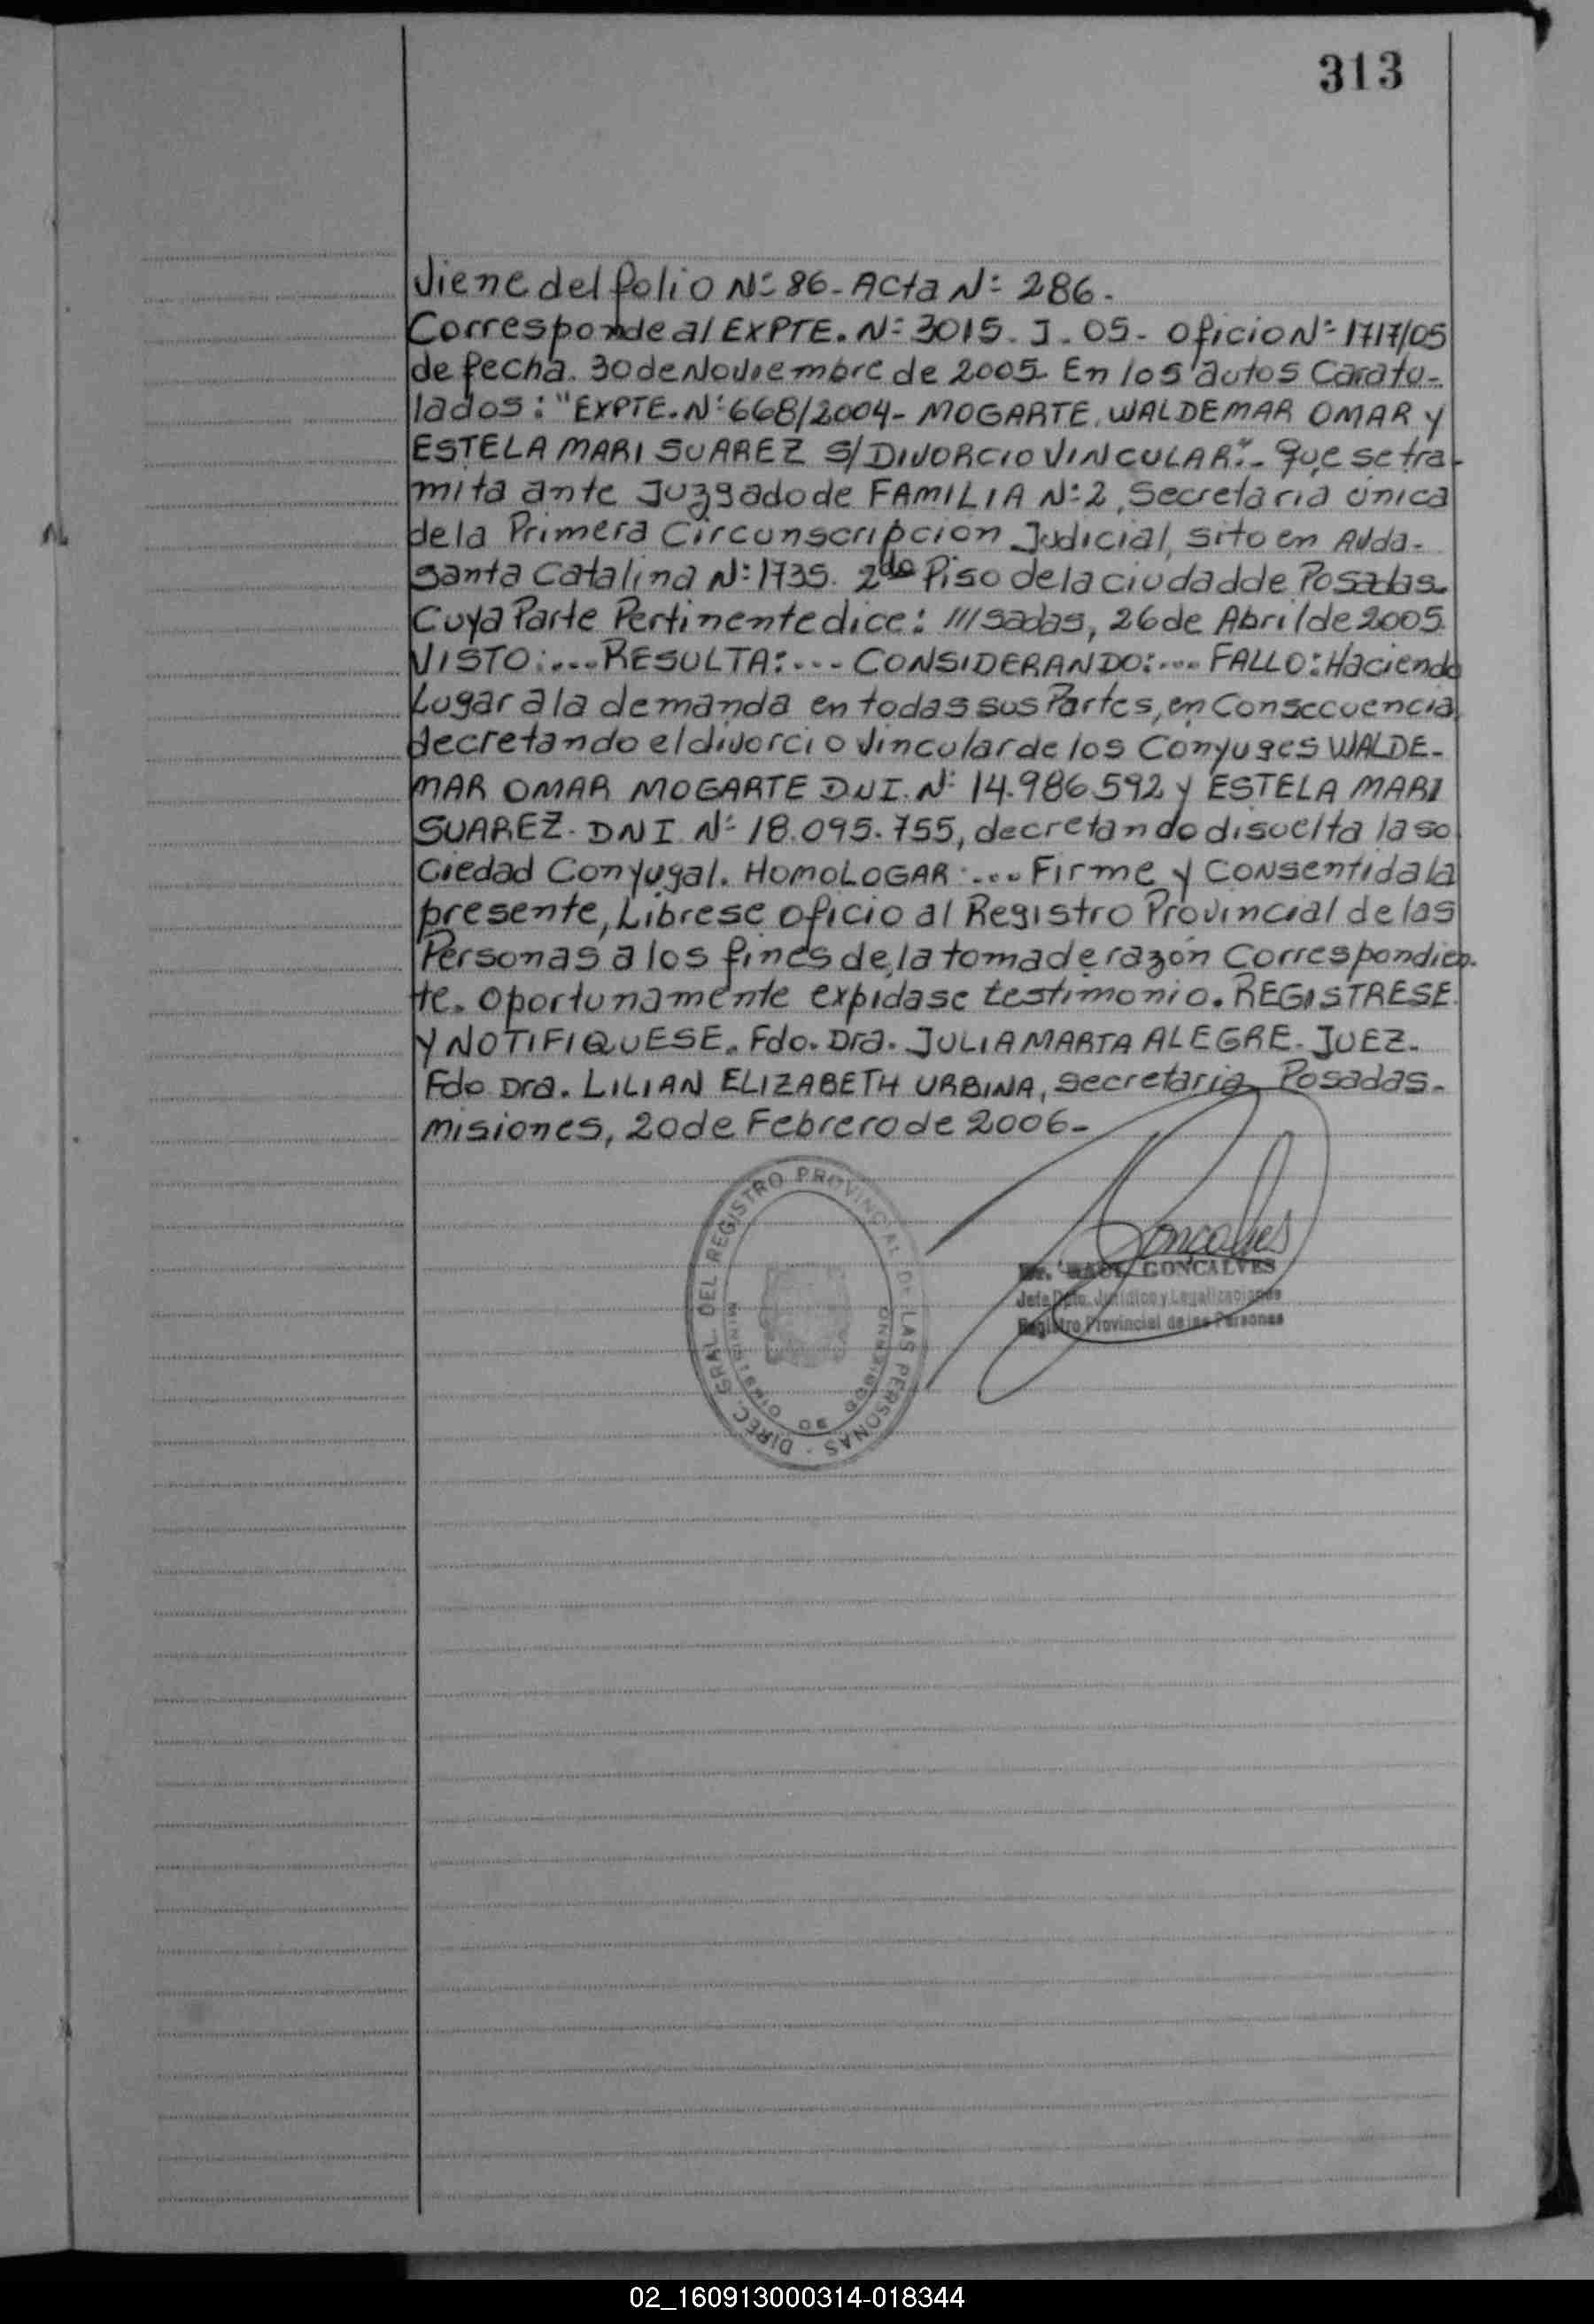 313
Viene del folio Nº 86 - Acta Nº 286.
Corresponde al EXPTE. Nº 3015. J. 05 - Oficio Nº 1717/05
de fecha. 30 de Noviembre de 2005. En los autos Caratu-
lados: "EXPTE. Nº 668/2004 - MOGARTE, WALDEMAR OMAR Y
ESTELA MARI SUAREZ S/ DIVORCIO VINCULAR". - Que se tra-
mita ante Juzgado de FAMILIA Nº 2, Secretaria única
de la Primera Circunscripcion Judicial, sito en Avda-
Santa Catalina Nº 1735. 2do Piso de la ciudad de Posadas-
Cuya Parte Pertinente dice: ///sadas, 26 de Abril de 2005.
VISTO:... RESULTA:.... CONSIDERANDO:.... FALLO: Haciendo
Lugar a la demanda en todas sus Partes, en Consecuencia,
decretando el divorcio vincular de los Conyuges WALDE-
MAR OMAR MOGARTE DNI. Nº 14.986.592 y ESTELA MARI
SUAREZ. DNI Nº 18.095.755, decretando disuelta la so
ciedad Conyugal. HOMOLOGAR:.... Firme y Consentida la
presente, Librese oficio al Registro Provincial de las
Personas a los fines de la toma de razón Correspondien-
te. Oportunamente expidase testimonio. REGISTRESE.
Y NOTIFIQUESE. Fdo. Dra. JULIA MARTA ALEGRE. JUEZ.
Fdo Dra. LILIAN ELIZABETH URBINA, secretaria Posadas.
misiones, 20 de Febrero de 2006-
DIREC. GRAL. DEL REGISTRO PROVINCIAL DE LAS PERSONAS
Goncalves
Dr. RAUL GONCALVES
Jefe Dpto. Juridico y Legalizaciones
Registro Provincial de las Personas
02_160913000314-018344